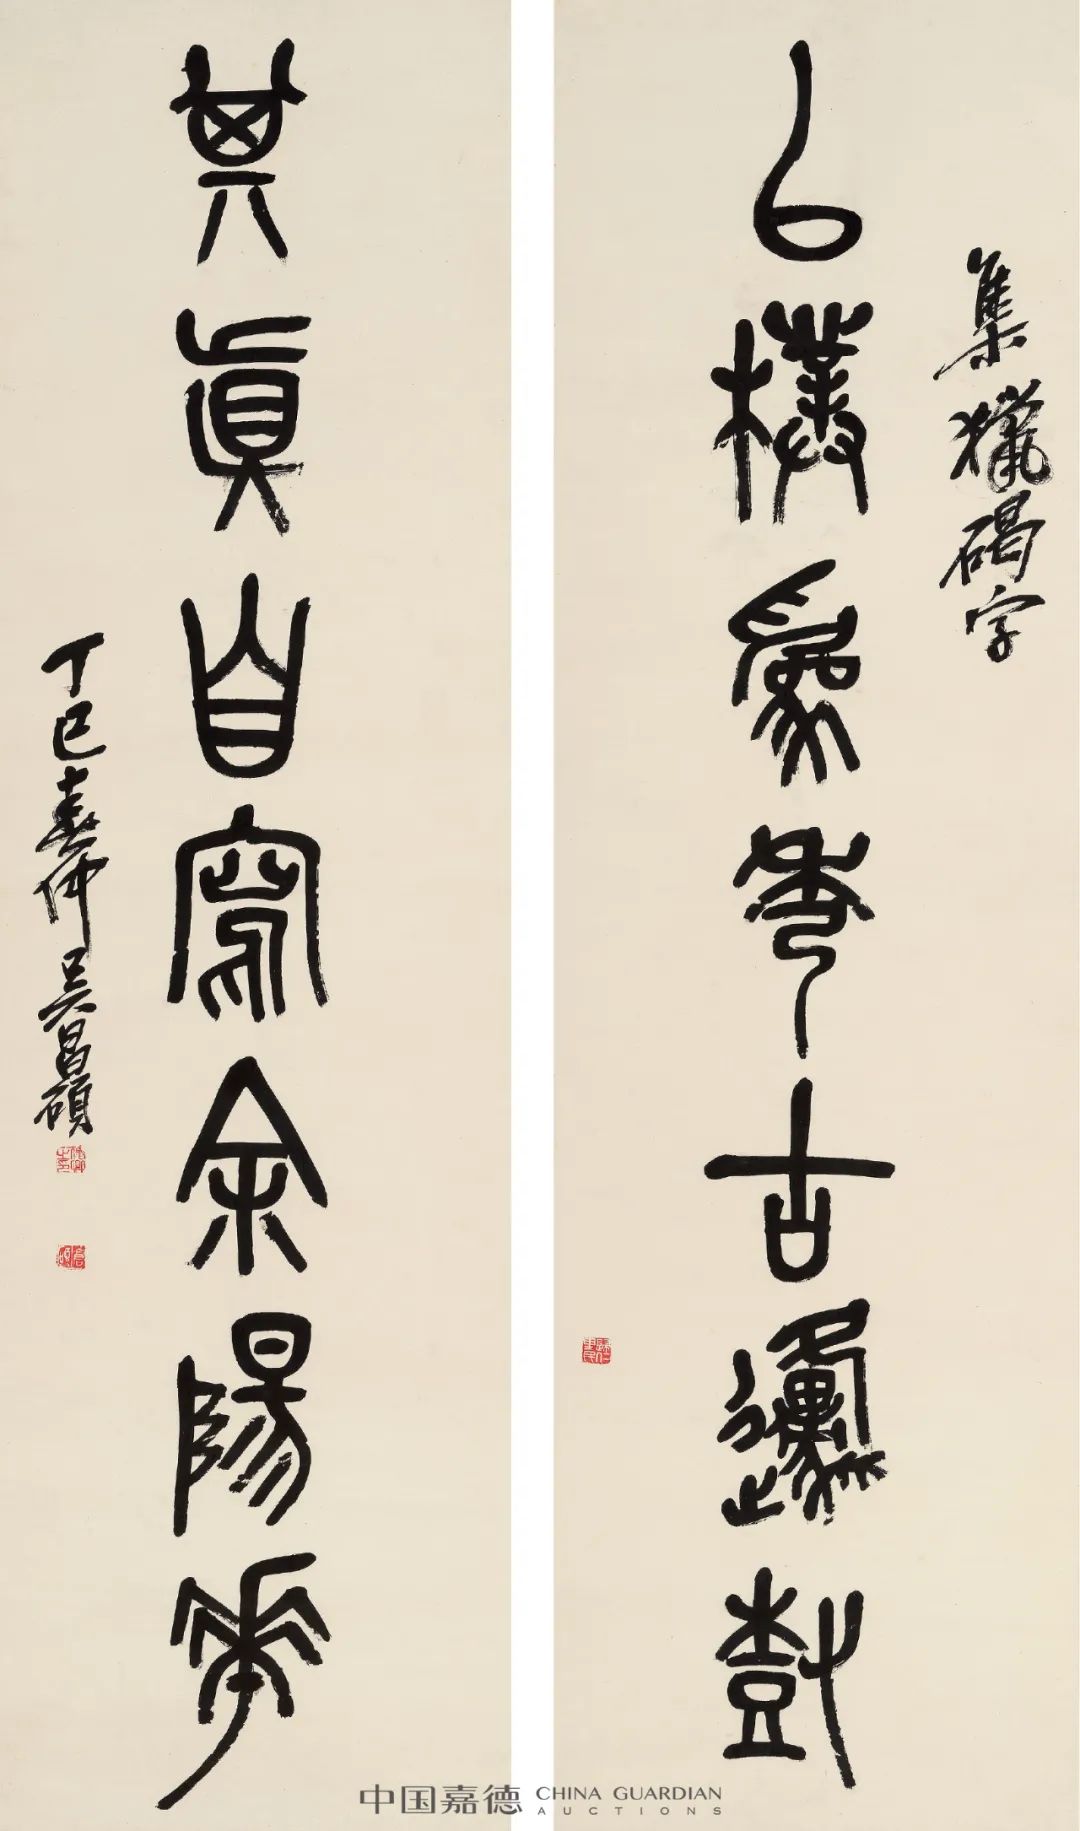 集獵碣字
㠯樸爲秀古邍尌
其眞自寫余陽華
丁巳春仲吳昌碩
中国嘉德 CHINA GUARDIAN AUCTIONS